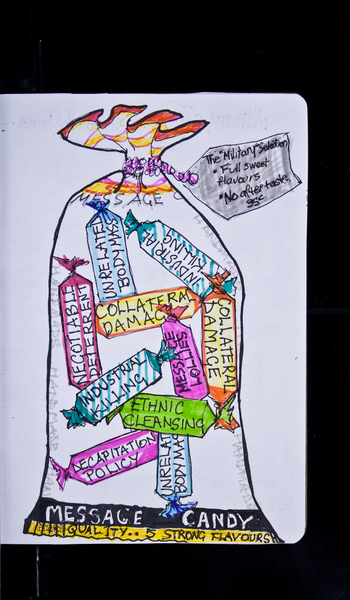 The "Military" Selection
* Full sweet
flavours
* No after taste.
95c
MESSAGE C
UNRELATE
BODY MASS
INDUSTRIAL
KILLING
NEGOTIABLE
DETERRENT
COLLATERAL
DAMAG
COLLATERAL
DAMAGE
MESSAGE
LOLLIES
INDUSTRIAL
KILLING
ETHNIC
CLEANSING
DECAPITATION
POLICY
UNRELATE
BODY MAS
MESSAGE CANDY
QUALITY... 5 STRONG FLAVOURS